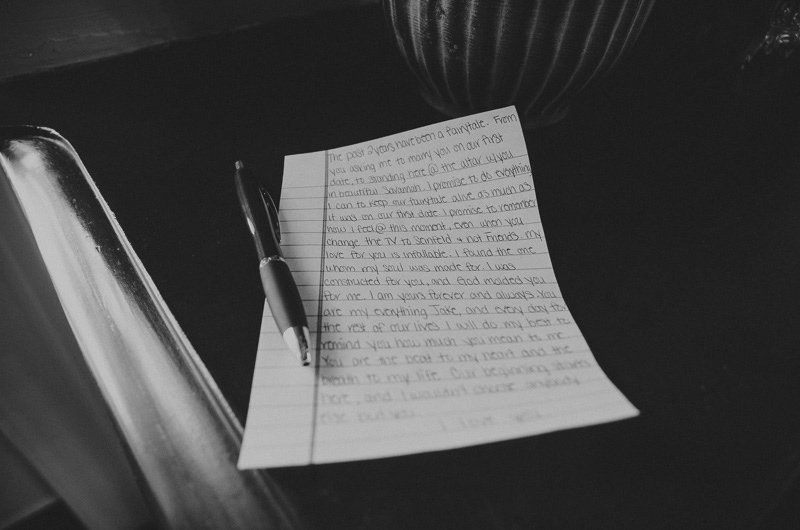 The past 2 years have been a fairytale. From
you asking me to marry you on our first
date, to standing here @ the altar w/you
in beautiful Savanah. I promise to do everything
I can to keep our fairytale alive as much as
it was on our first date. I promise to remember
how I feel @ this moment, even when you
change the TV to Seinfeld & not Friends. My
love for you is infallable. I found the one
whom my soul was made for. I was
constructed for you, and God molded you
for me. I am yours forever and always. You
are my everything Jake, and every day for
the rest of our lives I will do my best to
remind you how much you mean to me.
You are the beat to my heart and the
breath to my life. Our beginning starts
here, and I wouldn't choose anybody
else but you.
I love you